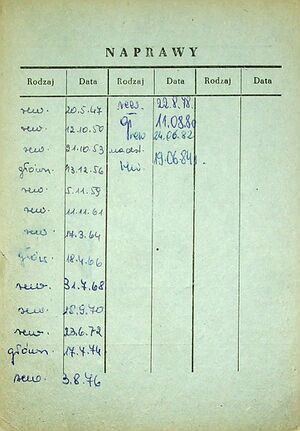 NAPRAWY
Rodzaj Data Rodzaj Data Rodzaj Data
rew. 20.5.47 rew. 22.8.78.
rew. 12.10.50 gł 11.0880
rew. 21.10.53 rew 24.06.82
główn. 13.12.56 19.06.84r.
rew. 5.11.59
rew. 11.11.61
rew. 17.3.64
główn. 18.4.66
rew. 31.7.68
rew. 28.9.70
rew. 23.6.72
główn. 17.7.74
rew. 3.8.76